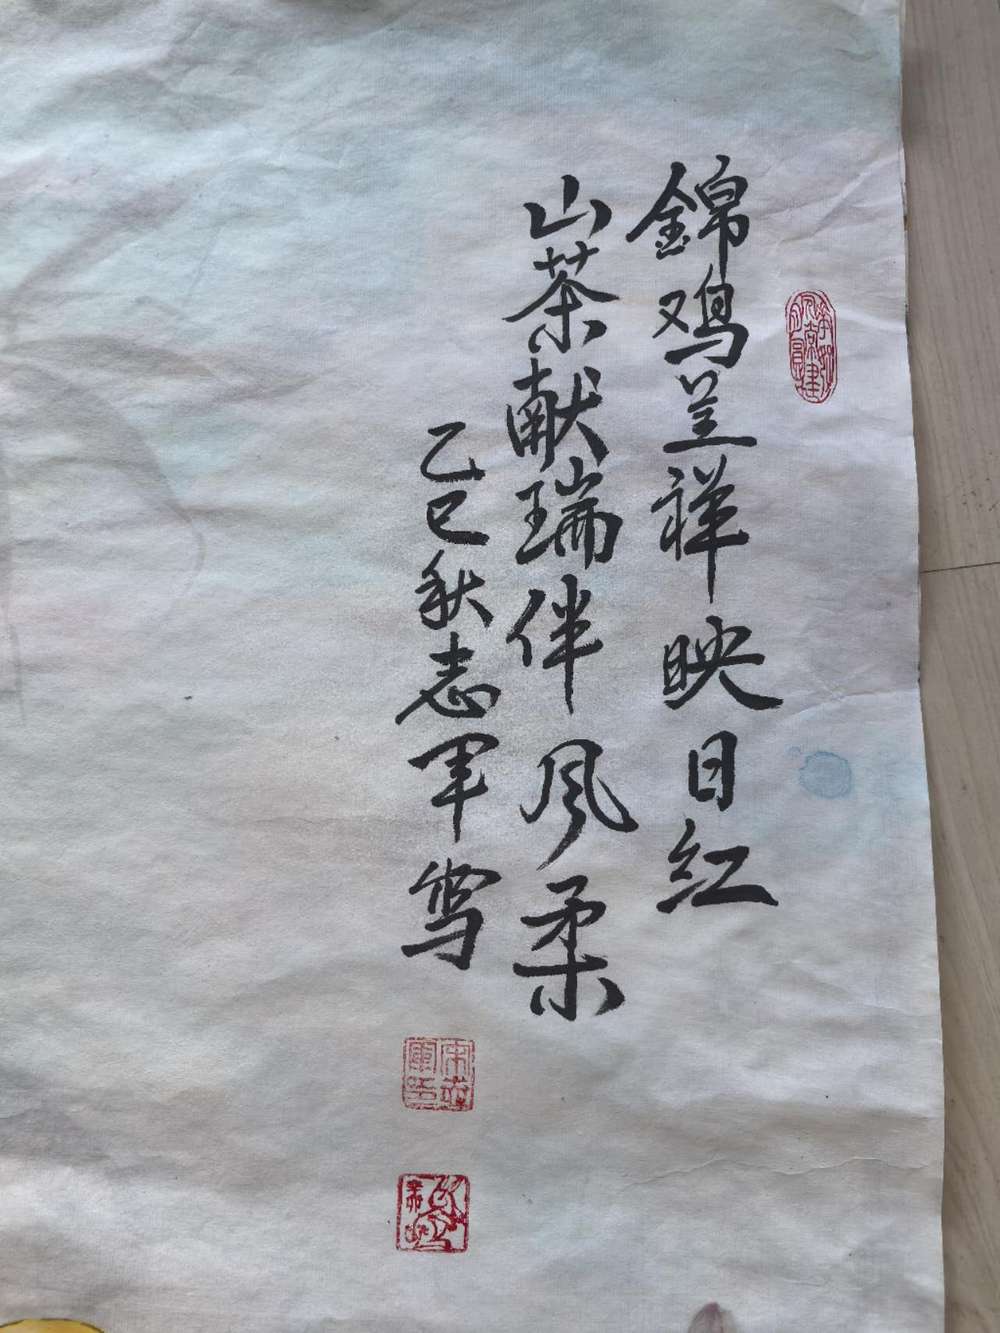 錦鸡呈祥映日红
山茶献瑞伴风柔
乙巳秋志军写